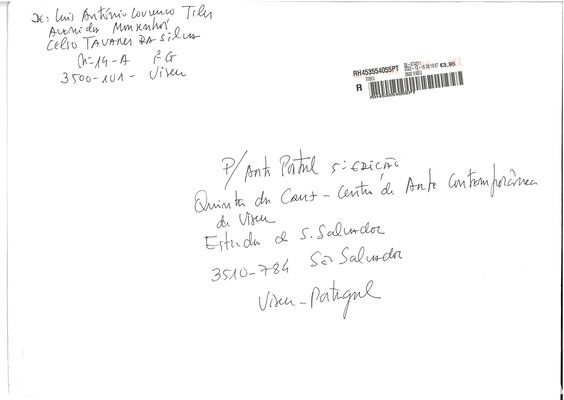 De: Luis António Lourenço Teles
Avenida Monsenhor
Celso Tavares da Silva
Nº-14-A 1º G
3500-101 - Viseu
RH453554055PT
€3,95
R
P/ Arte Postal 5ª EDIÇÃO
Quinta da Cruz - Centro de Arte Contemporânea
de Viseu
Estrada de S. Salvador
3510-784 São Salvador
Viseu - Portugal